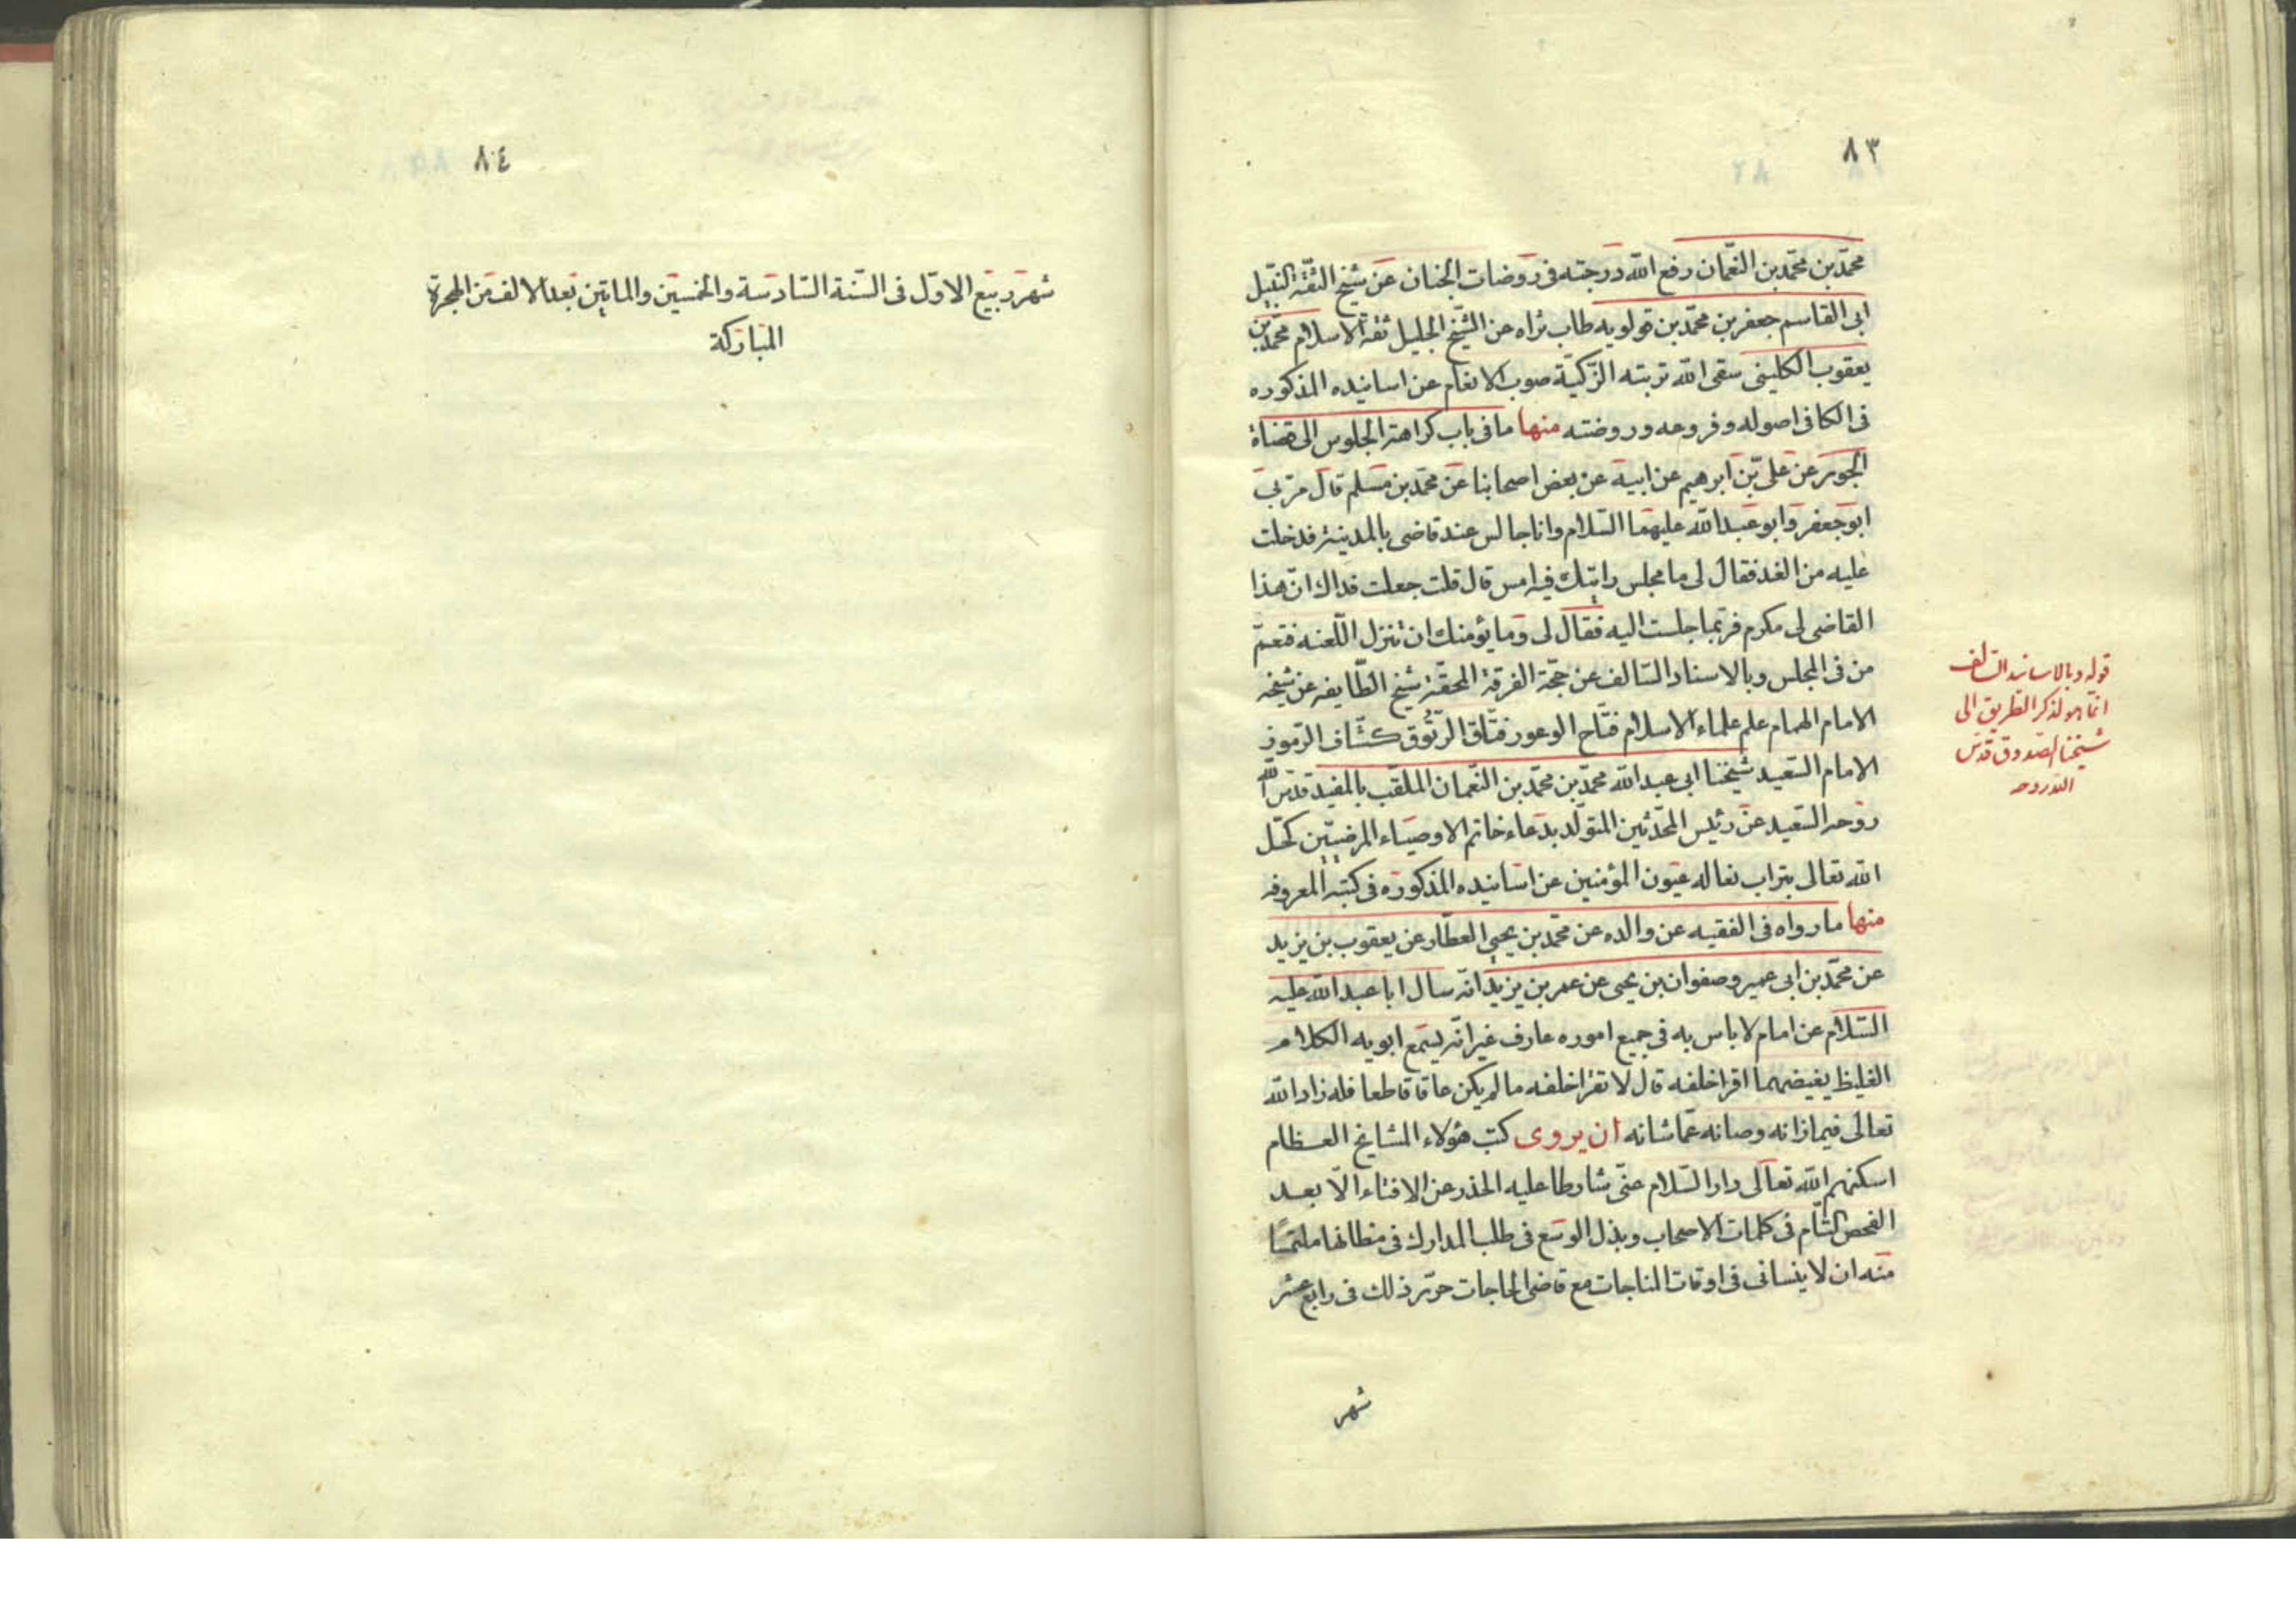 ٨٣
محمّد بن محمّد بن النّعمان رفع الله درجته فى روضات الجنان عن شيخ الثقة النّبيل
ابى القاسم جعفر بن محمّد بن قولويه طاب ثراه عن الشّيخ الجليل ثقة الاسلام محمّد بن
يعقوب الكلينى سقى الله تربته الزّكيّة صوب الانعام عن اسانيده المذكوره
فى الكافى اصوله وفروعه وروضته منها ما فى باب كراهة الجلوس الى قضاة
الجور عن على بن ابرهيم عن ابيه عن بعض اصحابنا عن محمّد بن مسلم قال مرّ بى
ابو جعفر وابو عبد الله عليهما السّلام وانا جالس عند قاضى بالمدينة فدخلت
عليه من الغد فقال لى ما مجلس رايتك فيه امس قال قلت جعلت فداك انّ هذا
القاضى لى مكرم فربّما جلست اليه فقال لى وما يؤمنك ان تنزل اللّعنه فتعمّ
من فى المجلس وبالاسناد السّالف عن حجّة الفرقة المحقّة شيخ الطّايفه عن شيخه
الامام الهمام علم علماء الاسلام فتّاح الوعور فتّاق الرّتوق كشّاف الرّموز
الامام السّعيد شيخنا ابى عبد الله محمّد بن محمّد بن النّعمان الملقّب بالمفيد قدّس الله
روحه السّعيد عن رئيس المحدّثين المتولّد بدعاء خاتم الاوصياء المرضيّين كحّل
الله تعالى بتراب نعاله عيون المؤمنين عن اسانيده المذكوره فى كتبه المعروفه
منها ما رواه فى الفقيه عن والده عن محمّد بن يحيى العطّار عن يعقوب بن يزيد
عن محمّد بن ابى عمير وصفوان بن يحيى عن عمر بن يزيد انّه سال ابا عبد الله عليه
السّلام عن امام لا باس به فى جميع اموره عارف غير انّه يسمع ابويه الكلام
الغليظ يغيضهما اقرا خلفه قال لا تقرا خلفه ما لم يكن عاقا قاطعا فله زاد الله
تعالى فيما زانه وصانه عمّا شانه ان يروى كتب هؤلاء المشايخ العظام
اسكنهم الله تعالى دار السّلام عنّى شارطا عليه الحذر عن الافتاء الّا بعد
الفحص التّام فى كلمات الاصحاب وبذل الوسع فى طلب المدارك فى مظانها ملتمسًا
منه ان لا ينسانى فى اوقات المناجات مع قاضى الحاجات حرّر ذلك فى رابع عشر
شهر
قوله وبالاسناد السّالف
انّما هو لذكر الطّريق الى
شيخنا الصّدوق قدّس
الله روحه
٨٤
شهر ربيع الاوّل فى السّنة السّادسة والخمسين والماتين بعد الالف من الهجرة
المباركة